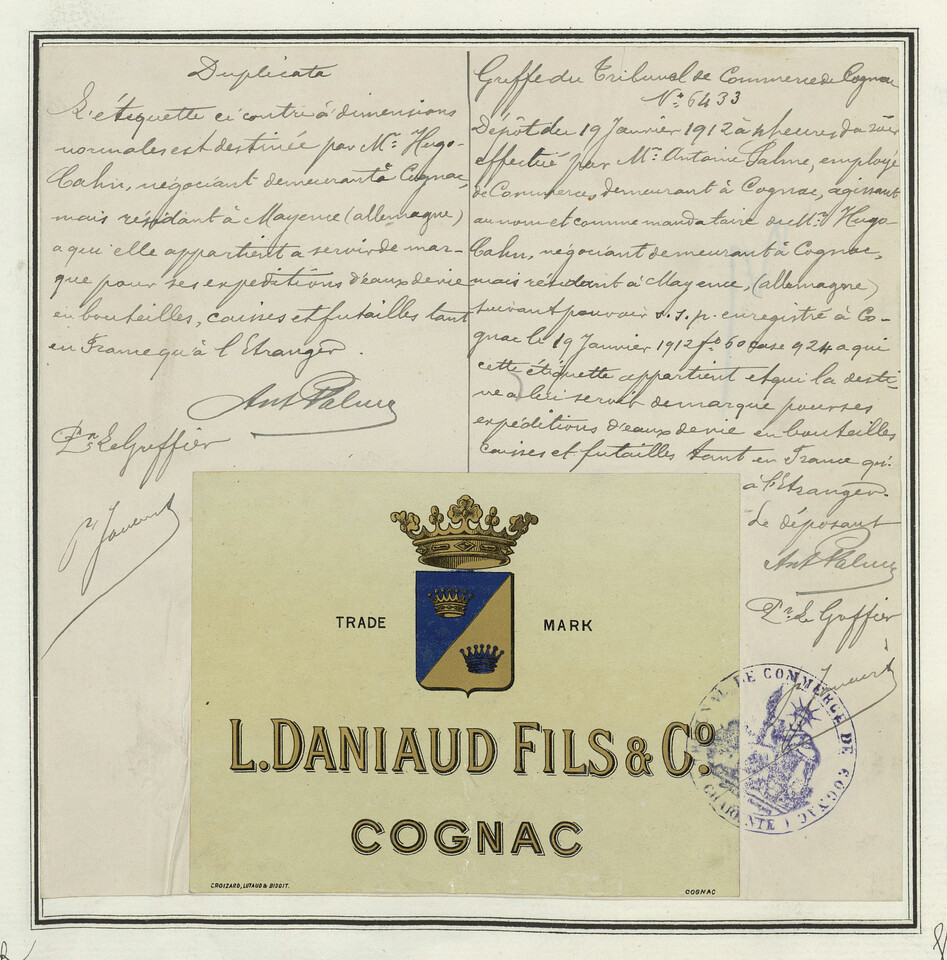 Duplicata
L'étiquette ci contre à dimensions
normales est destinée par Mr. Hugo-
Cahn, négociant demeurant à Cognac,
mais résidant à Mayence (allemagne)
a qui elle appartient a servir de mar-
que pour ses expéditions d'eaux de vie
en bouteilles, caisses et futailles tant
en France qu'à l'Etranger.
Pr. Le Greffier
Greffe du Tribunal de Commerce de Cognac
No. 6433
Dépôt du 19 Janvier 1912 à heures du soir
effectué par Mr. Antoine employé
de Commerce, demeurant à Cognac, agissant
au nom et comme mandataire de Mr. Hugo-
Cahn, négociant demeurant à Cognac,
mais résidant à Mayence, (allemagne)
suivant pouvoir s.s.p. enregistré à Co-
gnac le 19 Janvier 1912 fo 60 case 924 a qui
cette étiquette appartient et qui la desti-
ne a lui servir de marque pour ses
expéditions d'eaux de vie en bouteilles
caisses et futailles tant en France qu'
à l'Etranger.
Le déposant
Pr. Le Greffier
TRADE MARK
L. DANIAUD FILS & Co.
COGNAC
CROIZARD, LUTAUD & BIDOIT.
COGNAC
TRIBUNAL DE COMMERCE DE COGNAC
(CHARENTE)